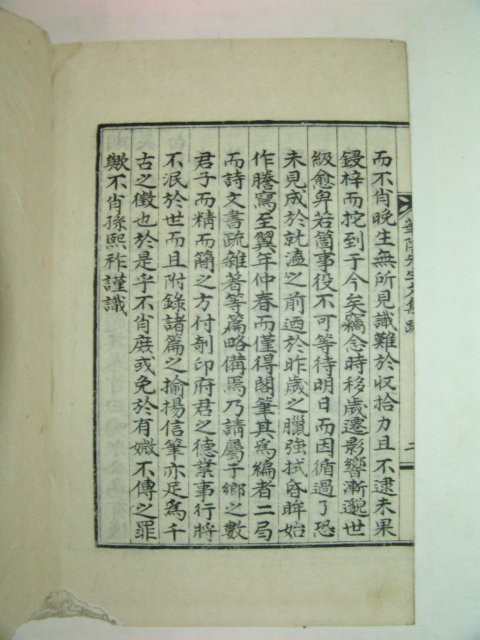 而不肖晩生無所見識難於収拾力且不逮未果
鋟梓而拕到于今矣竊念時移歲遷影響漸邈世
級愈卑若箇事役不可等待明日而因循過了恐
未見成於就溘之前迺於昨歲之臘強拭昏眸始
作謄寫至翼年仲春而僅得閣筆其爲編者二局
而詩文書疏雜著等篇略備焉乃請屬子鄕之數
君子而精而簡之方付剞印府君之德業事行將
不泯於世而且附錄諸篇之揄揚信筆亦足爲千
古之徵也於是乎不肖庶或免於有媺不傳之罪
歟不肖孫熙祚謹識
先生文集跋
二